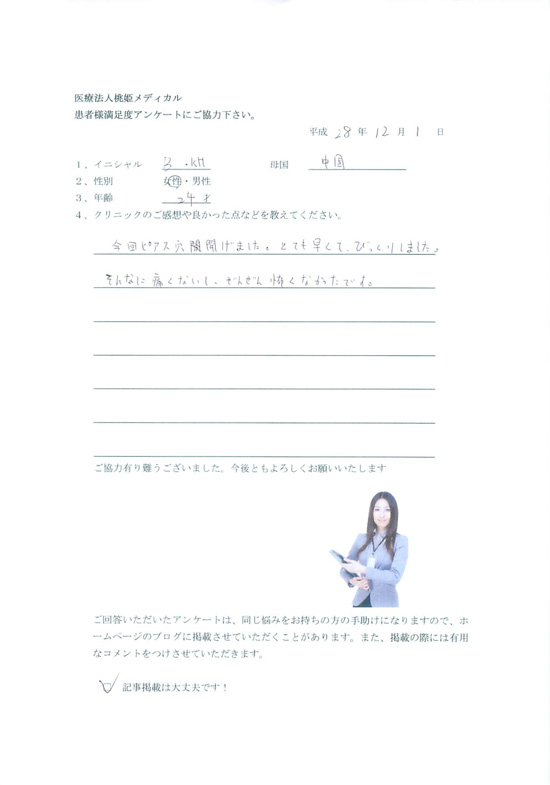 医療法人桃姫メディカル
患者様満足度アンケートにご協力下さい。
平成 28 年 12 月 1 日
1、イニシャル 母国 中国
2、性別 女性・男性
3、年齢 24才
4、クリニックのご感想や良かった点などを教えてください。
今回ピアス穴開けました。とても早くて、びっくりしました。
そんなに痛くないし、ぜんぜん怖くなかったです。
ご協力有り難うございました。今後ともよろしくお願いいたします
ご回答いただいたアンケートは、同じ悩みをお持ちの方の手助けになりますので、ホ
ームページのブログに掲載させていただくことがあります。また、掲載の際には有用
なコメントをつけさせていただきます。
記事掲載は大丈夫です！